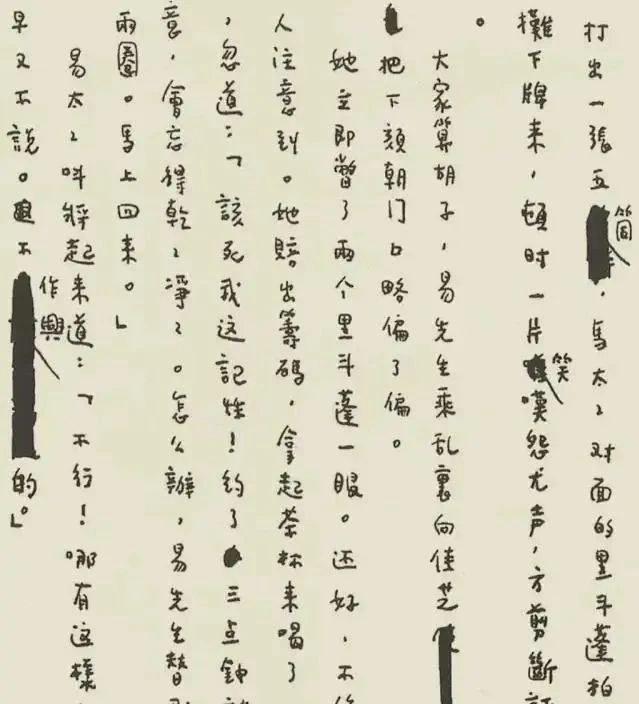 打出一張五筒，馬太〻对面的黑斗蓬拍
攤下牌来，頓时一片笑嘆怨尤声，方剪斷
。
大家算胡子，易先生乘乱裏向佳芝
把下頦朝门口略偏了偏。
她立即瞥了兩个黑斗蓬一眼。还好，不
人注意到。她賠出籌碼，拿起茶杯来喝了
，忽道：「該死我这記性！約了三点鐘
意，會忘得乾〻淨〻。怎么辦，易先生替
兩圈。馬上回来。」
易太〻叫將起来道：「不行！哪有这樣
早又不說。不作興的。」